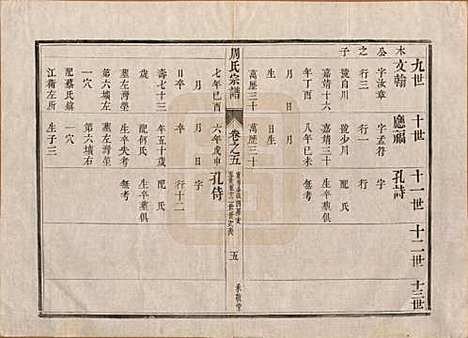 九世
十世
十一世
十二世
十三世
木
文翰
應福
孔詩
公
字汝章
字孟得
之
行三
行一
配
氏
子
號自川
號少川
生卒墓俱
嘉靖十六
嘉靖三十
無考
年丁酉
八年己未
月
月
日生
日生
萬歷三十
萬歷三十
周氏宗譜
卷之五
五
承敬堂
七年己酉
六年戊申
孔侍
月
月
字
日卒
日卒
行十二
壽七十三
年五十歲
配
氏
墓左灣塋
配何氏
生卒墓俱
第六墳
生卒失考
無考
一穴
墓左灣塋
配蔡氏
第六壙右
江蘅左所
一穴
生子三